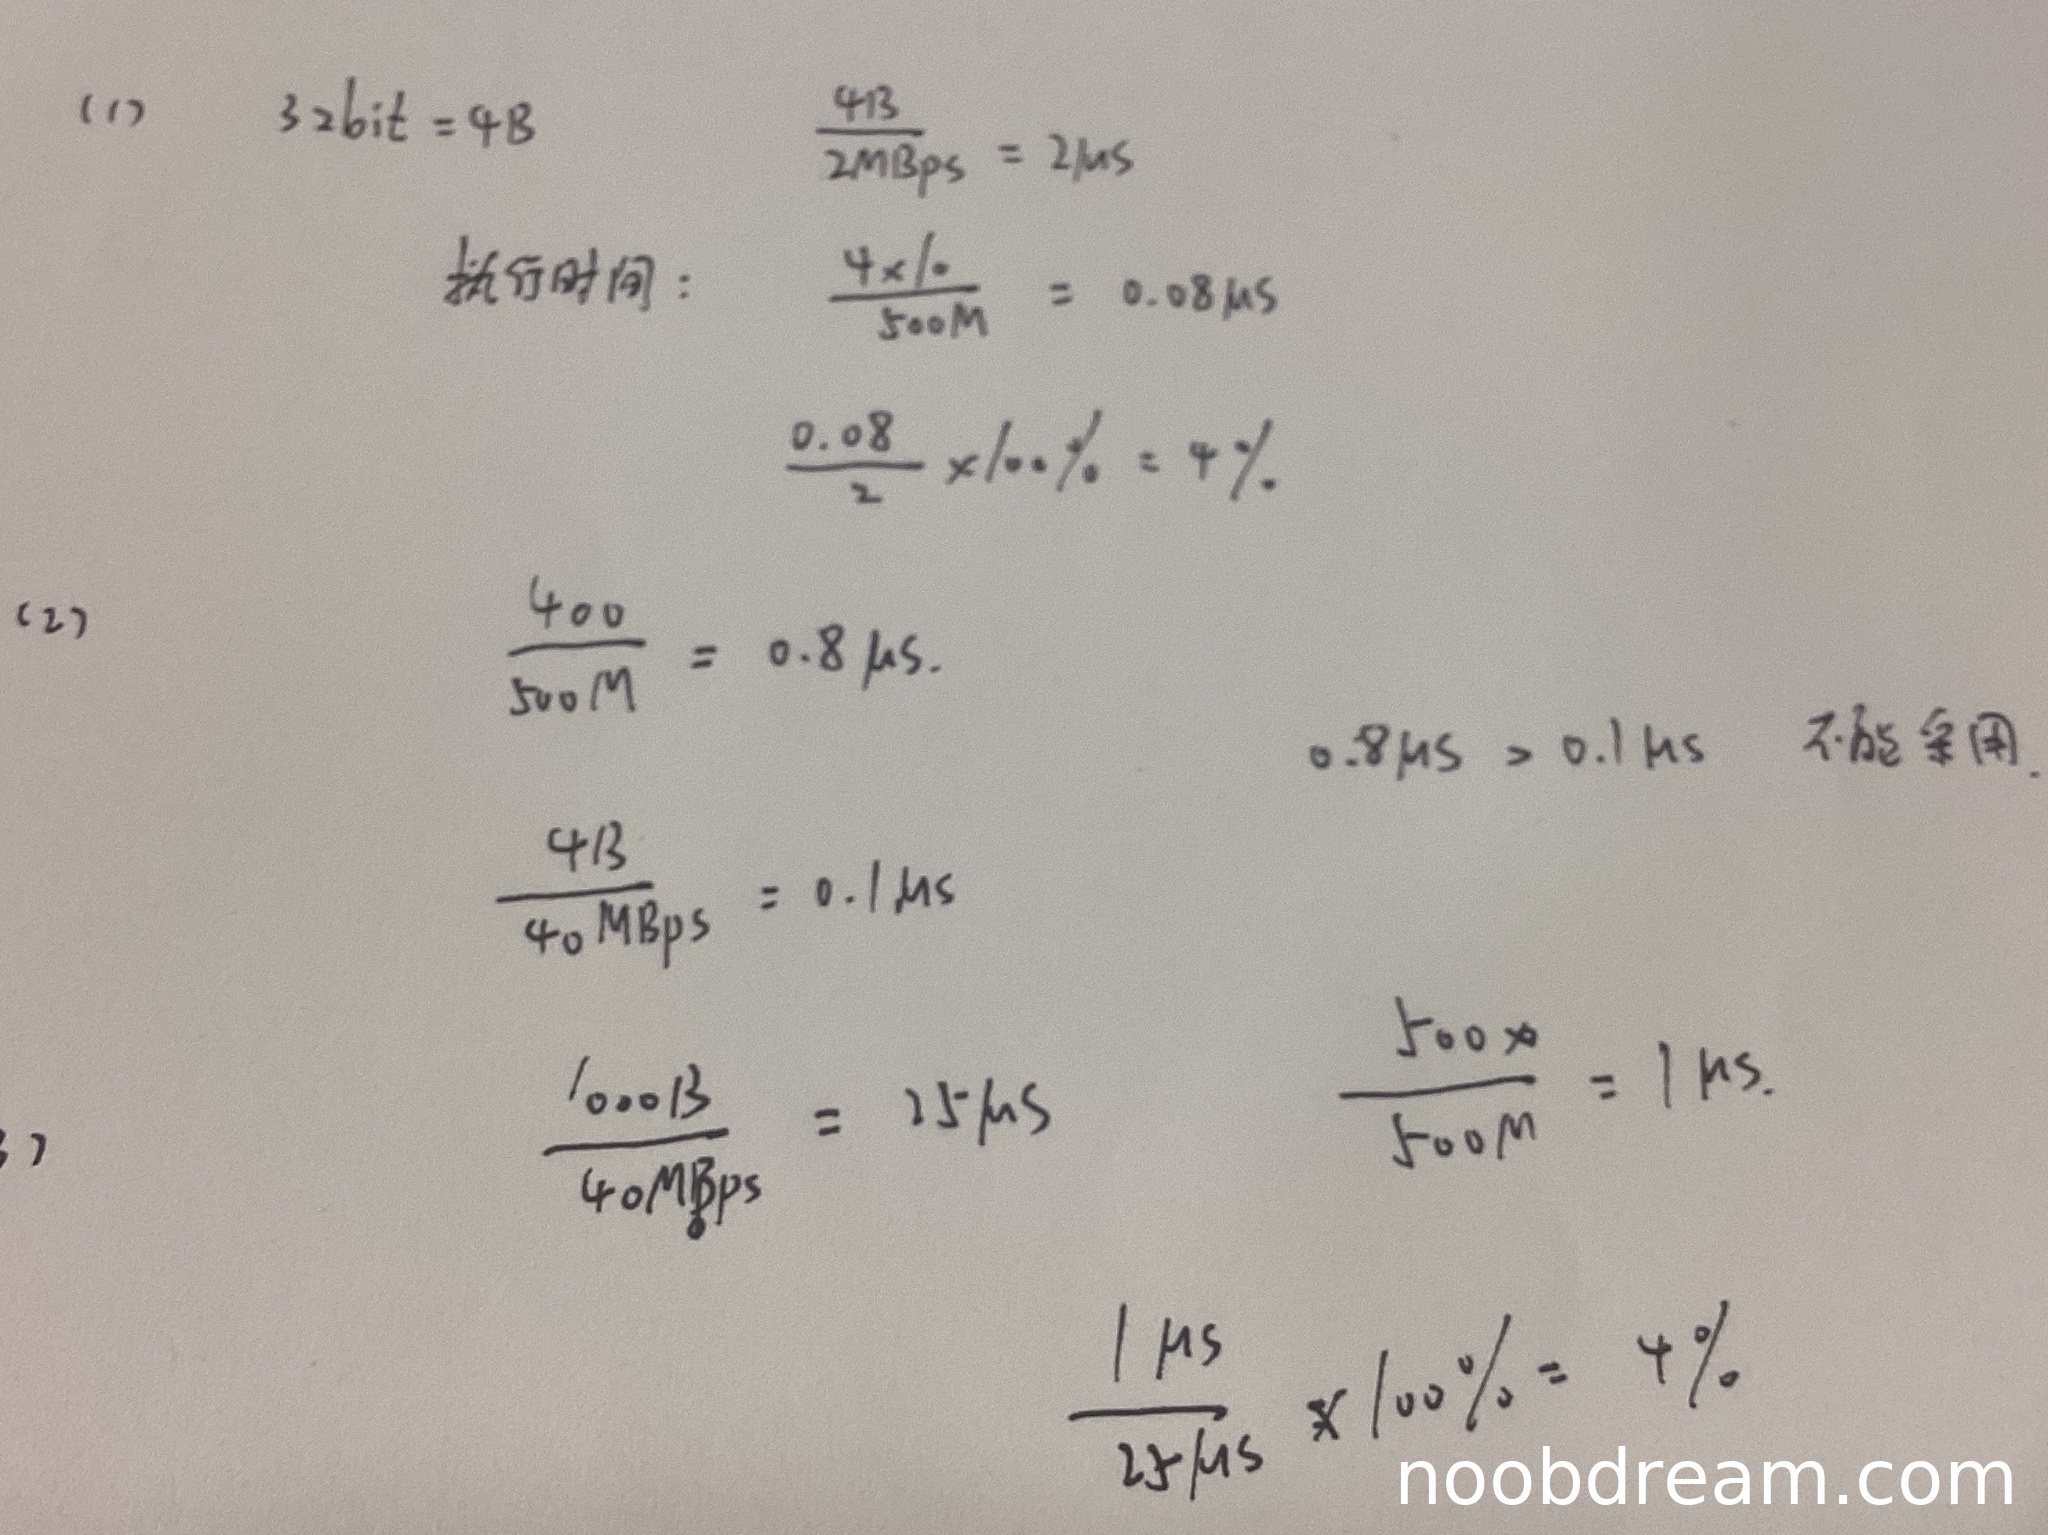 (1) 32bit = 4B 4B/2MBps = 2μs
执行时间: 4×10/500M = 0.08μs
0.08/2 ×100% = 4%
(2) 400/500M = 0.8μs.
0.8μs > 0.1μs 不能采用.
4B/40MBps = 0.1μs
3) 1000B/40MBps = 25μs 500/500M = 1μs.
1μs/25μs ×100% = 4%
noobdream.com